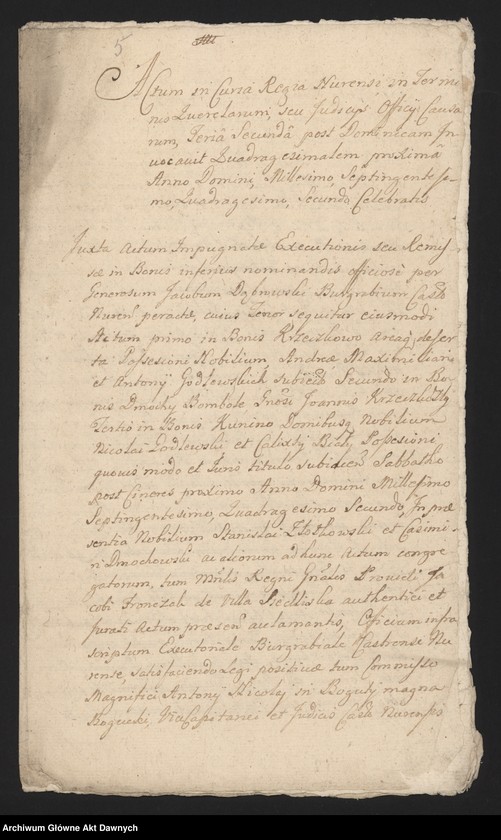 5
Actum in Curia Regia Nurensi in Termi
nis Querelarum, seu Judicÿs Officÿ Causa
rum, Feria Secunda post Dominicam In
vocavit Quadragesimalem proxima
Anno Domini, Millesimo, Septingentesi
mo, Quadragesimo, Secundo Celebratis
Juxta Actum Impugnatæ Executionis seu Remis
sæ in Bonis inferius nominandis officiose per
Generosum Jacobum Dąbrowski Burgrabium Castr
Nuren peractæ, cuius Tenor sequitur eiusmodi
Actum primo in Bonis Krzeczkowo areaq deser
ta Possesioni Nobilium Andreæ Maximiliani
et Antonÿ Godlewskich subiectis Secundo in Bo
nis Dmochy Bombole Joannis
Tertio in Bonis Kunino Domibusq Nobilium
Nicolai Godlewski et Calixtÿ Biały Possesioni
quovis modo et Juris titulo subiectis Sabbatho
post Cineres proximo Anno Domini Millesimo
Septingentesimo, Quadragesimo Secundo, In præ
sentia Nobilium Stanislai Złotkowski et Casimi
ri Dmochowski ac aliorum ad hunc Actum congre
gatorum, tum Mnlis Regni Gnalis Providi Ja
cobi Franczek de Villa Siedliska authentici et
Jurati Actum præsen aclamantis, Officium infra
scriptum Executoriale Burgrabiale Castrense Nu
rense, satisfaciendo Legi positivæ tum Commisso
Magnifici Antonÿ Nicolai in Boguty magna
Bogucki, ViceCapitanei et Judicis Castr Nurensis
Archiwum Główne Akt Dawnych